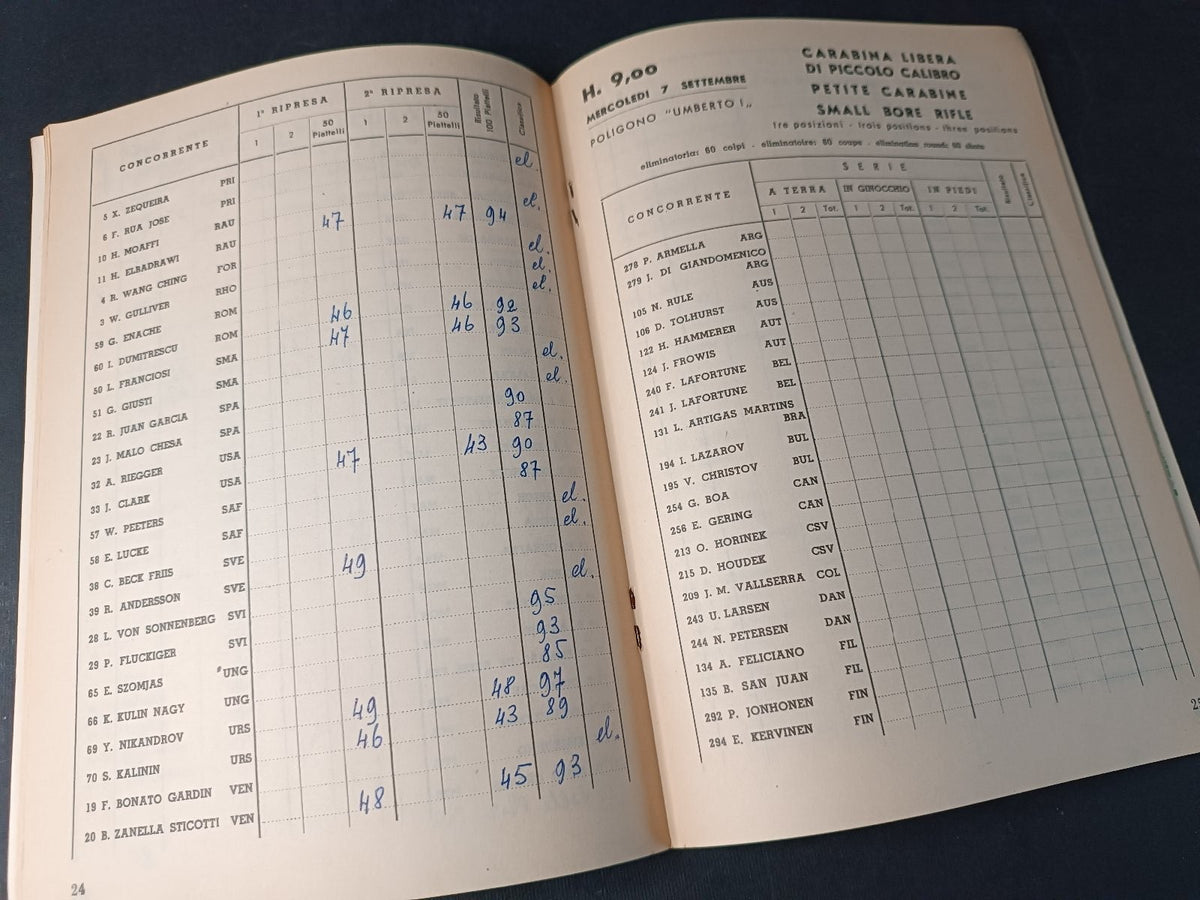 CONCORRENTE 1ª RIPRESA 2ª RIPRESA Risultato 100 Piattelli Classifica
1 2 50 Piattelli 1 2 50 Piattelli
5 X. ZEQUEIRA PRI
6 F. RUA JOSE PRI el.
10 H. MOAFFI RAU el.
11 H. ELBADRAWI RAU 47 47 94
4 R. WANG CHING FOR el.
3 W. GULLIVER RHO el.
59 G. ENACHE ROM el.
60 I. DUMITRESCU ROM 46 46 92
50 L. FRANCIOSI SMA 47 46 93
51 G. GIUSTI SMA el.
22 R. JUAN GARCIA SPA el.
23 J. MALO CHESA SPA 90
32 A. RIEGGER USA 87
33 J. CLARK USA 47 43 90
57 W. PEETERS SAF 87
58 E. LUCKE SAF el.
38 C. BECK FRIIS SVE el.
39 R. ANDERSSON SVE 49
28 L. VON SONNENBERG SVI el.
29 P. FLUCKIGER SVI 95
65 E. SZOMJAS UNG 93
66 K. KULIN NAGY UNG 85
69 Y. NIKANDROV URS 49 48 97
70 S. KALININ URS 46 43 89
19 F. BONATO GARDIN VEN el.
20 B. ZANELLA STICOTTI VEN 48 45 93
24
H. 9,00
MERCOLEDI 7 SETTEMBRE
POLIGONO "UMBERTO I„
CARABINA LIBERA
DI PICCOLO CALIBRO
PETITE CARABINE
SMALL BORE RIFLE
tre posizioni - trois positions - three positions
eliminatoria: 60 colpi - eliminatoire: 60 coups - elimination round: 60 shots
CONCORRENTE SERIE Risultato Classifica
A TERRA IN GINOCCHIO IN PIEDI
1 2 Tot. 1 2 Tot. 1 2 Tot.
278 P. ARMELLA ARG
279 J. DI GIANDOMENICO
ARG
105 N. RULE AUS
106 D. TOLHURST AUS
122 H. HAMMERER AUT
124 J. FROWIS AUT
240 F. LAFORTUNE BEL
241 J. LAFORTUNE BEL
131 L. ARTIGAS MARTINS
BRA
194 I. LAZAROV BUL
195 V. CHRISTOV BUL
254 G. BOA CAN
256 E. GERING CAN
213 O. HORINEK CSV
215 D. HOUDEK CSV
209 J. M. VALLSERRA COL
243 U. LARSEN DAN
244 N. PETERSEN DAN
134 A. FELICIANO FIL
135 B. SAN JUAN FIL
292 P. JONHONEN FIN
294 E. KERVINEN FIN